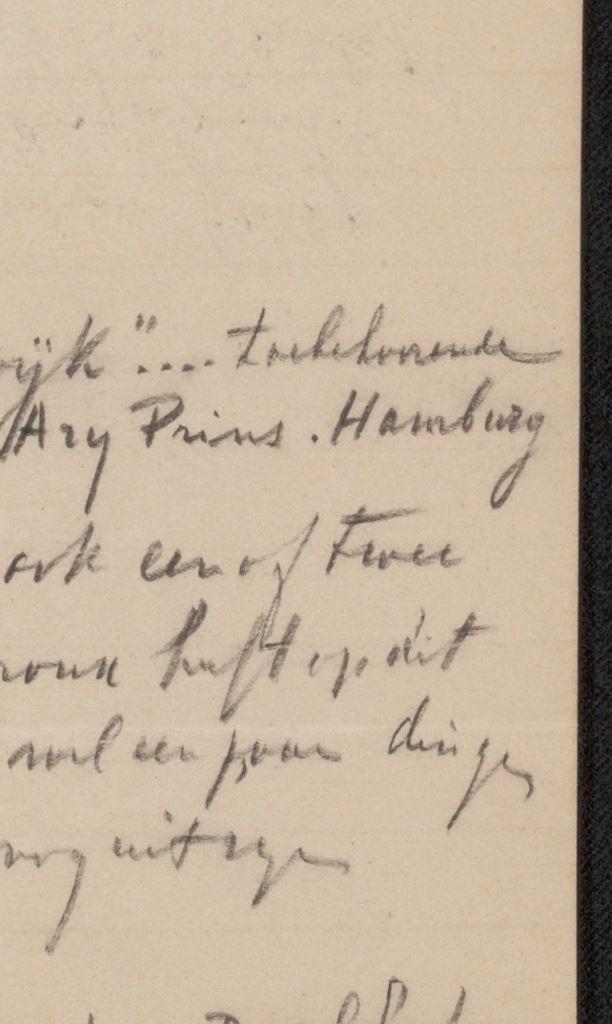 ijk".... toebehoorende
Ary Prins. Hamburg
ook een of twee
heeft op dit
wel een paar dingen
nog uit